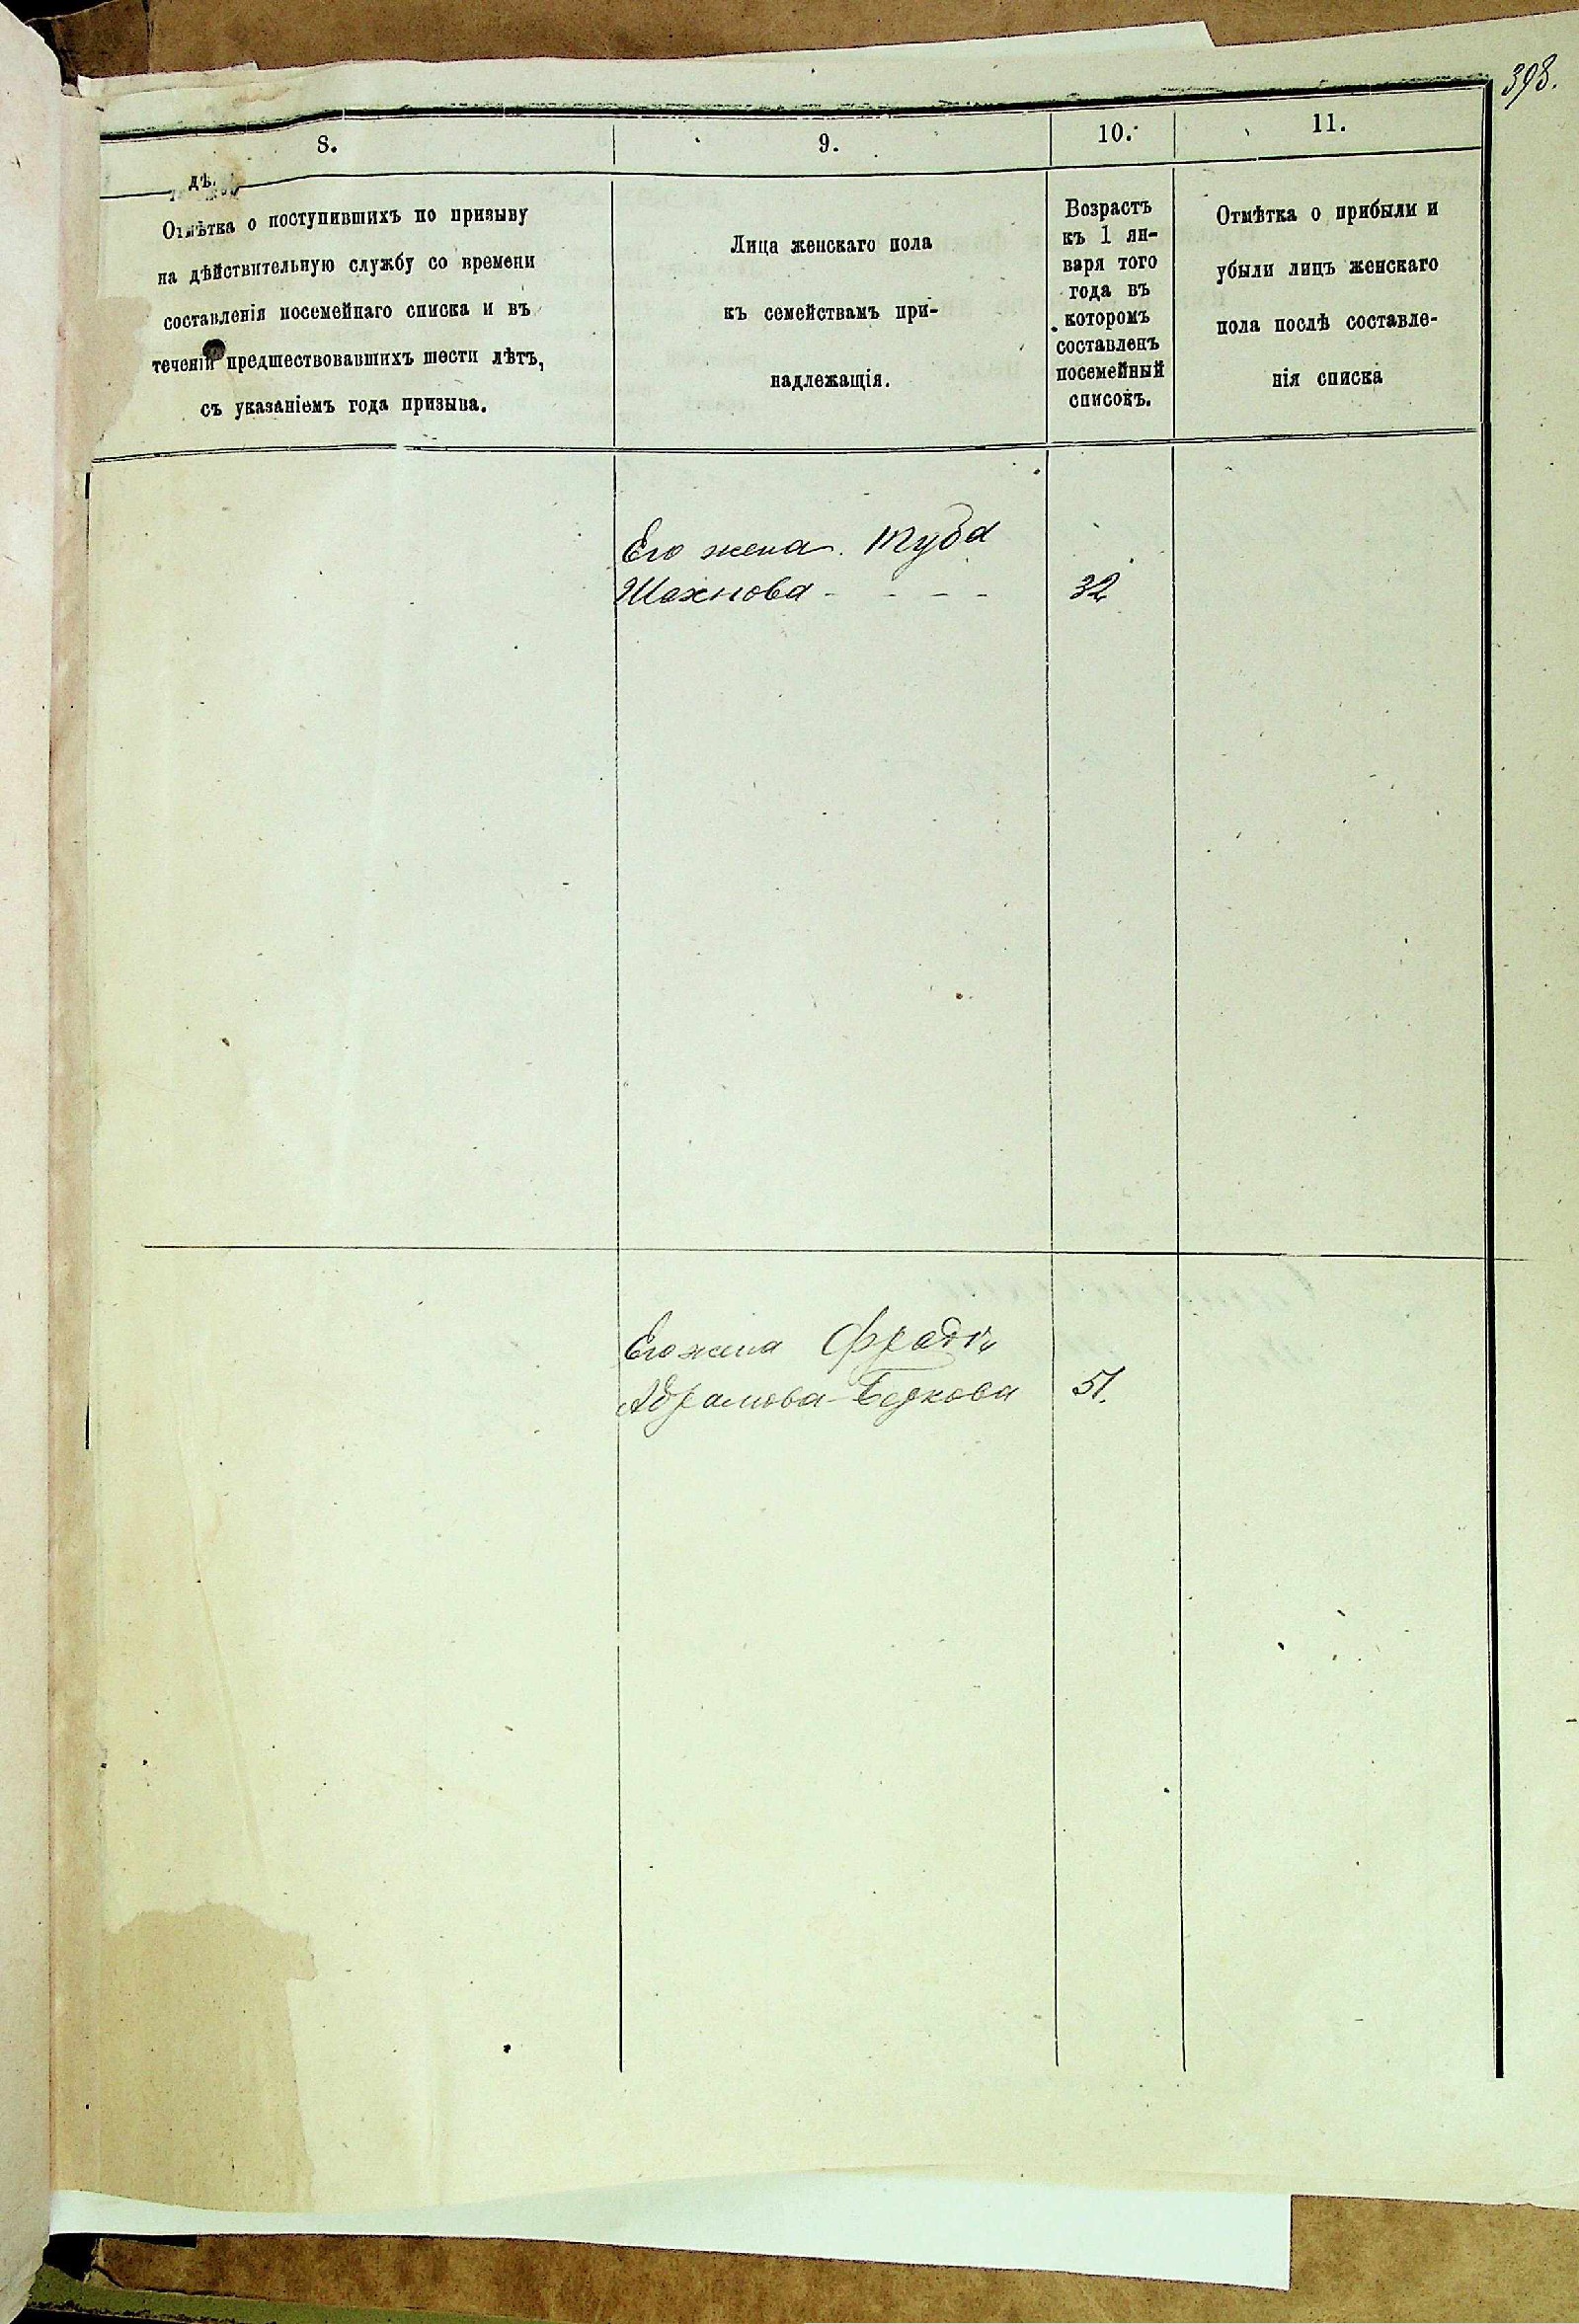 398.
8.
9.
10.
11.
дѣ.
Отмѣтка о поступившихъ по призыву
на дѣйствительную службу со времени
составленія посемейнаго списка и въ
теченіи предшествовавшихъ шести лѣтъ,
съ указаніемъ года призыва.
Лица женскаго пола
къ семействамъ при-
надлежащія.
Возрастъ
къ 1 ян-
варя того
года въ
котором­ъ
составленъ
посемейный
списокъ.
Отмѣтка о прибыли и
убыли лицъ женскаго
пола послѣ составле-
нія списка
Его жена. Туба
Шахнова - - - -
32
Его жена
Абрамова-Беркова
51.